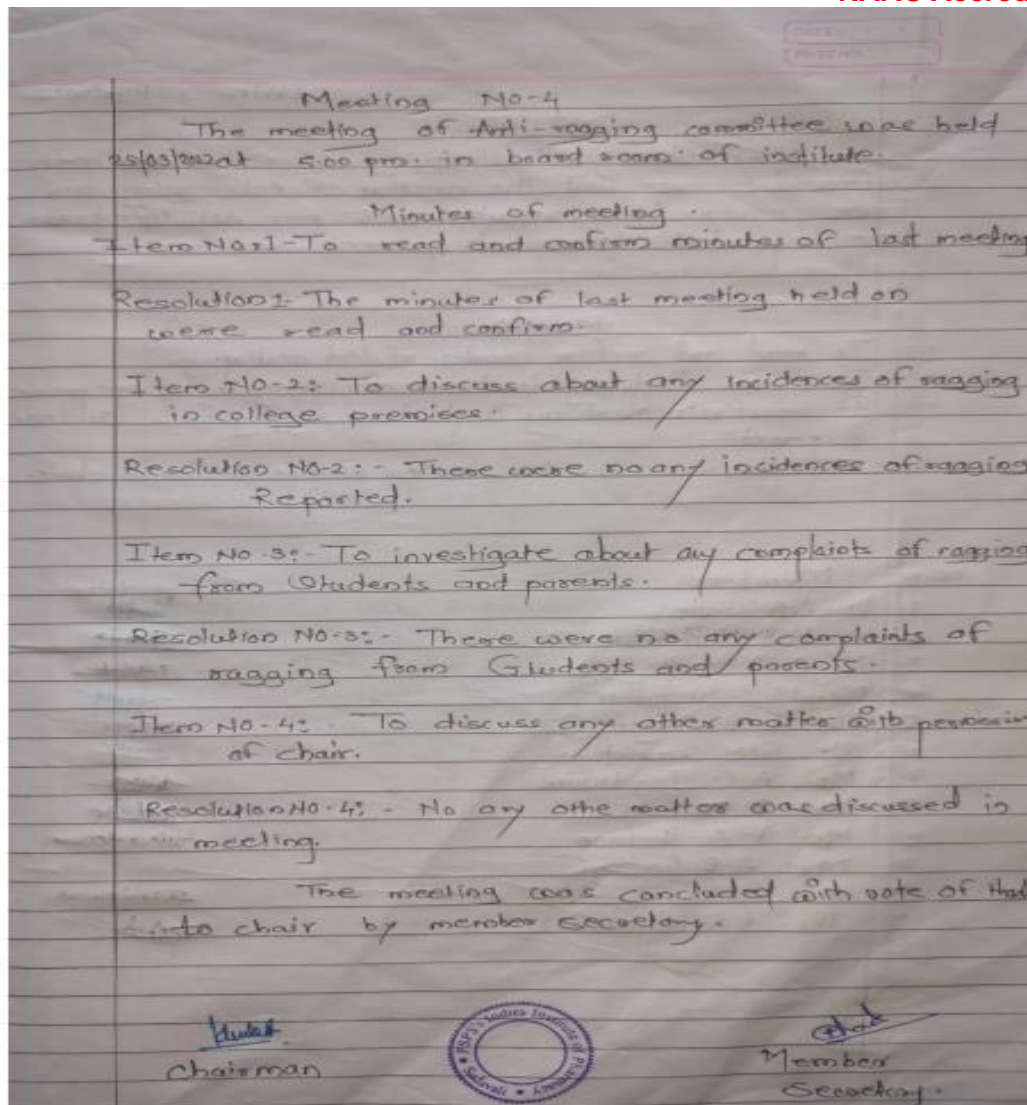 Meeting No-4
The meeting of Anti-ragging committee was held
at 5.00 pm. in board room of institute.
Minutes of meeting.
Item No:1-To read and confirm minutes of last meeting
Resolution:- The minutes of last meeting held on
were read and confirm.
Item No-2: To discuss about any incidences of ragging
in college premises.
Resolution No-2:- There were no any incidences of ragging
Reported.
Item No-3:- To investigate about any complaints of ragging
from Students and parents.
Resolution No-3:- There were no any complaints of
ragging from Students and parents.
Item No-4: To discuss any other matter with
of chair.
Resolution No-4:- No any othe matter was discussed in
meeting.
The meeting was concluded with vote of
to chair by member secretary.
PSPS's Indira Institute of Pharmacy
Sadavali
Chairman
Member
Secretary.